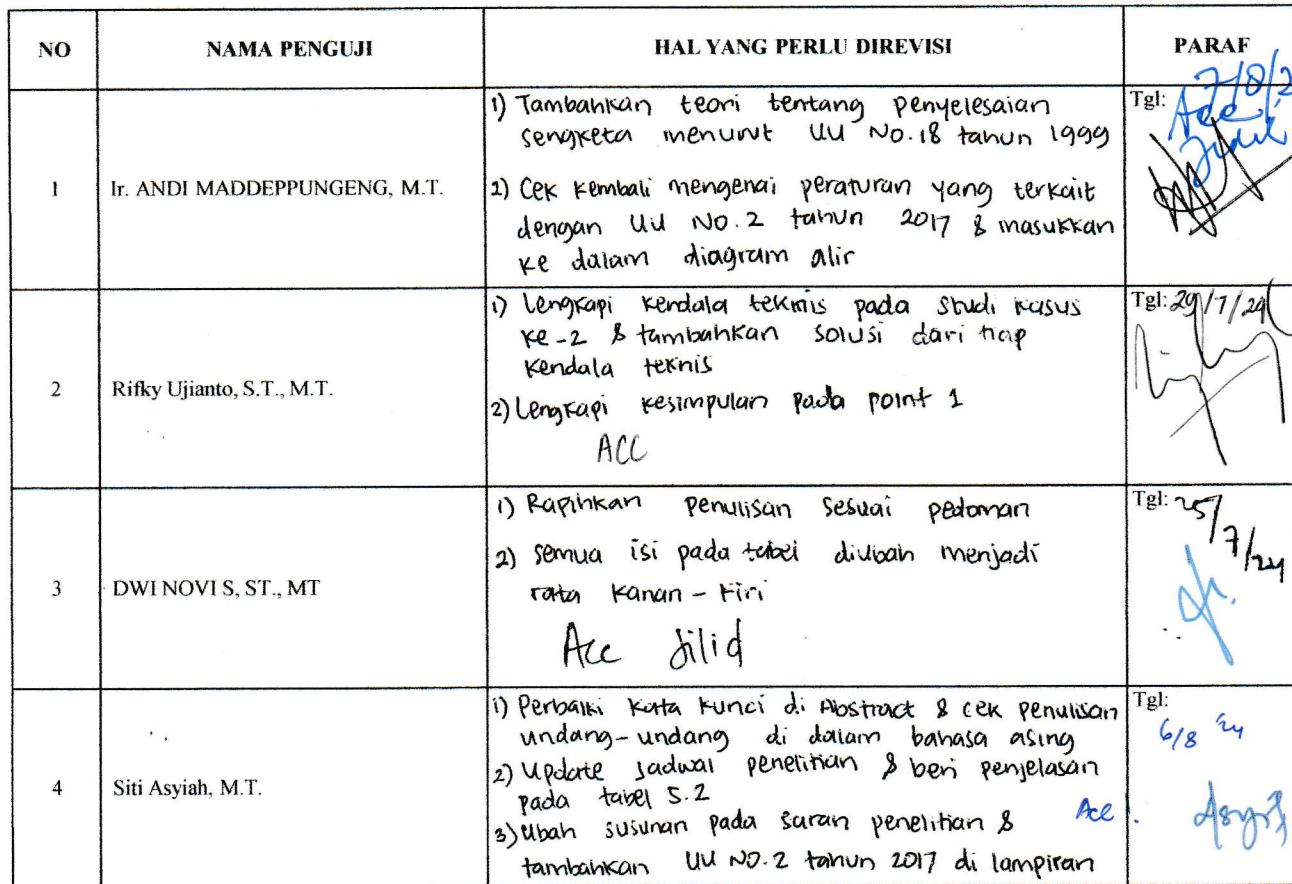 NO NAMA PENGUJI HAL YANG PERLU DIREVISI PARAF
1 Ir. ANDI MADDEPPUNGENG, M.T.
1) Tambahkan teori tentang penyelesaian
sengketa menurut UU No.18 tahun 1999
2) Cek kembali mengenai peraturan yang terkait
dengan UU No.2 tahun 2017 & masukkan
ke dalam diagram alir
Tgl: 7/8/2
Acc
Jilid
2 Rifky Ujianto, S.T., M.T.
1) Lengkapi kendala teknis pada studi kasus
ke-2 & tambahkan solusi dari tiap
kendala teknis
2) Lengkapi kesimpulan pada point 1
ACC
Tgl: 29/7/24
3 DWI NOVI S, ST., MT
1) Rapihkan penulisan sesuai pedoman
2) semua isi pada tabel diubah menjadi
rata kanan - kiri
Acc Jilid
Tgl: 25/7/24
4 Siti Asyiah, M.T.
1) Perbaiki kata kunci di Abstract & cek penulisan
undang-undang di dalam bahasa asing
2) Update jadwal penelitian & beri penjelasan
pada tabel 5.2
3) Ubah susunan pada saran penelitian &
tambahkan UU NO.2 tahun 2017 di lampiran
Acc
Tgl:
6/8 '24